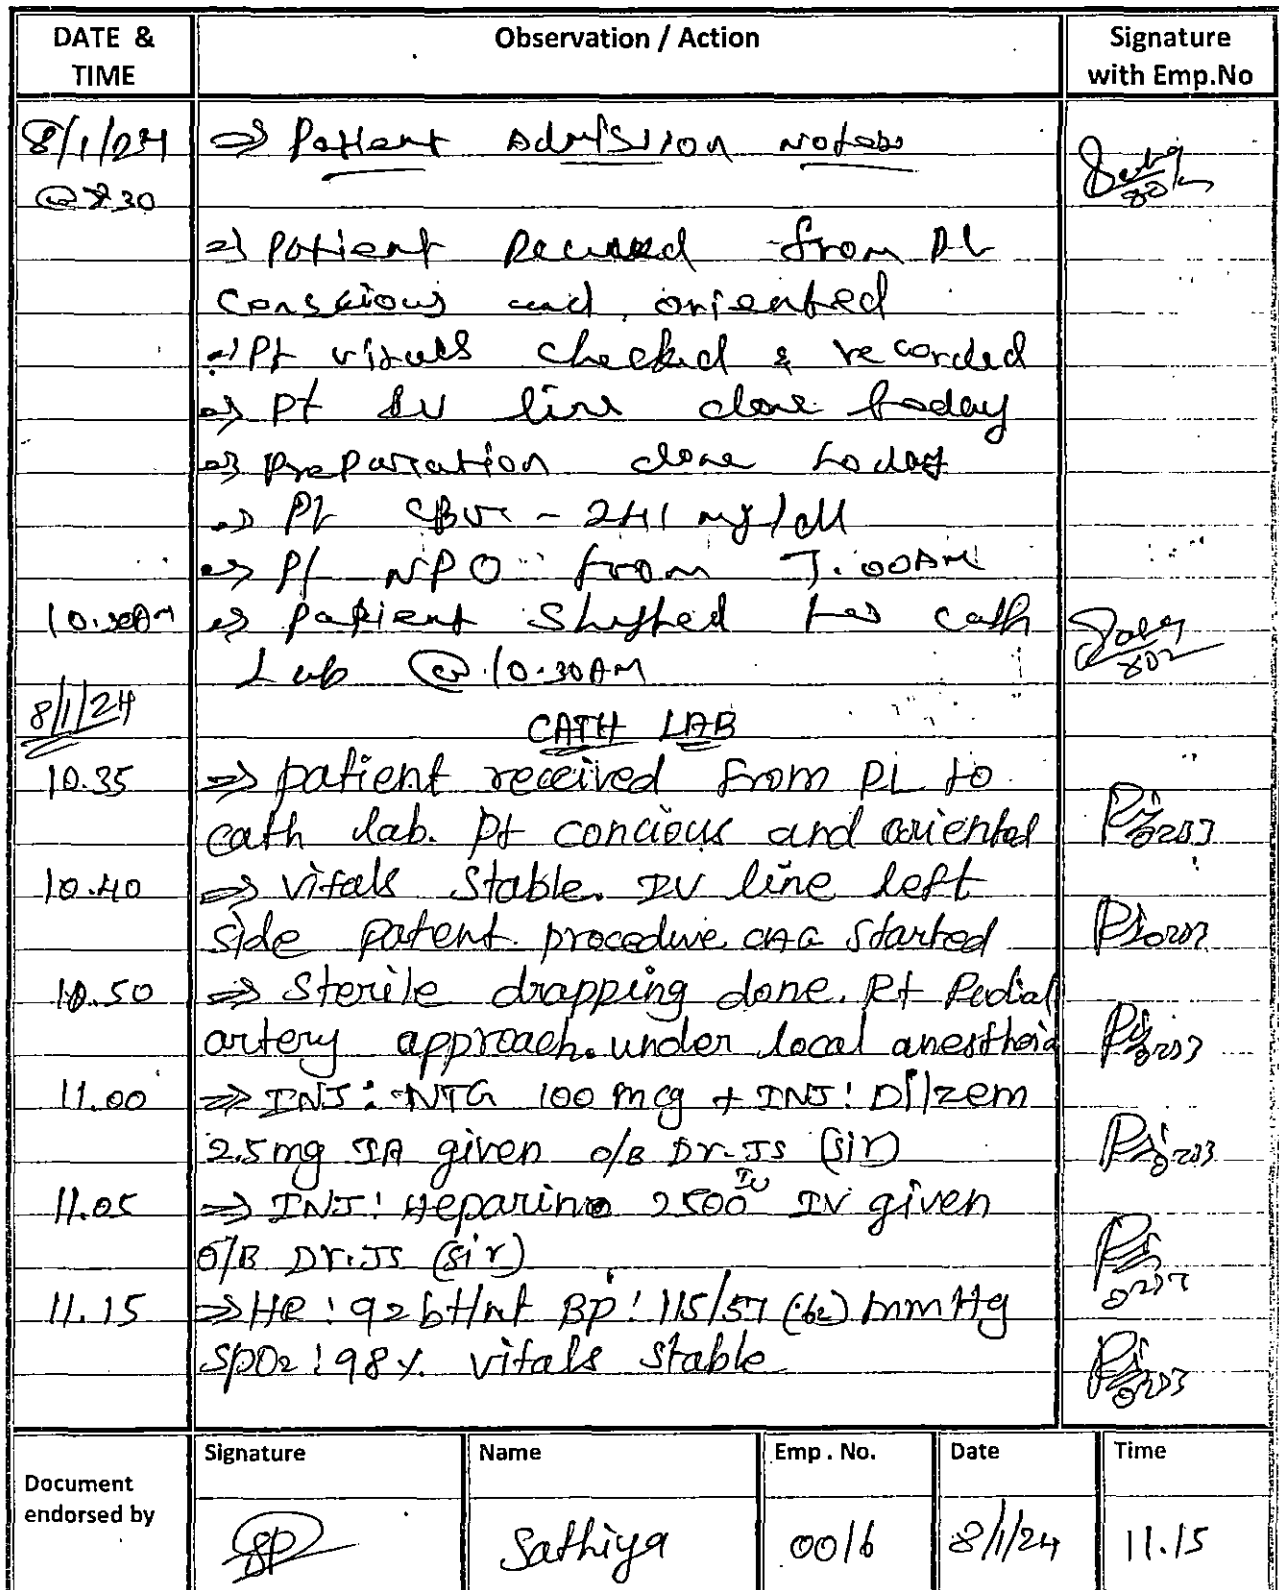 DATE & TIME Observation / Action Signature with Emp.No
8/1/24 => Patient Admission Notes
@ 8.30
=> Patient received from PL
Conscious and oriented
=> Pt vitals checked & recorded
=> Pt IV line done today
=> Preparation done today
=> Pt CBG - 241 mg/dl
=> Pt NPO from 7.00AM
10.30AM => Patient Shifted to cath
Lab @ 10.30AM
8/1/24 CATH LAB
10.35 => patient received from PL to
cath lab. Pt concious and oriented
10.40 => vitals stable. IV line left
side patent. procedure CAG started
10.50 => Sterile drapping done. Rt Radial
artery approach. under local anesthesia
11.00 => INJ: NTG 100 mcg + INJ: Dilzem
2.5mg IA given O/B Dr. JS (sir)
11.05 => INJ: Heparin 2500 IU IV given
O/B Dr. JS (sir)
11.15 => HR: 92 bt/mt BP: 115/57 mmHg
SpO2: 98%. vitals stable
Document endorsed by Signature Name Emp. No. Date Time
Sathiya 0016 8/1/24 11.15